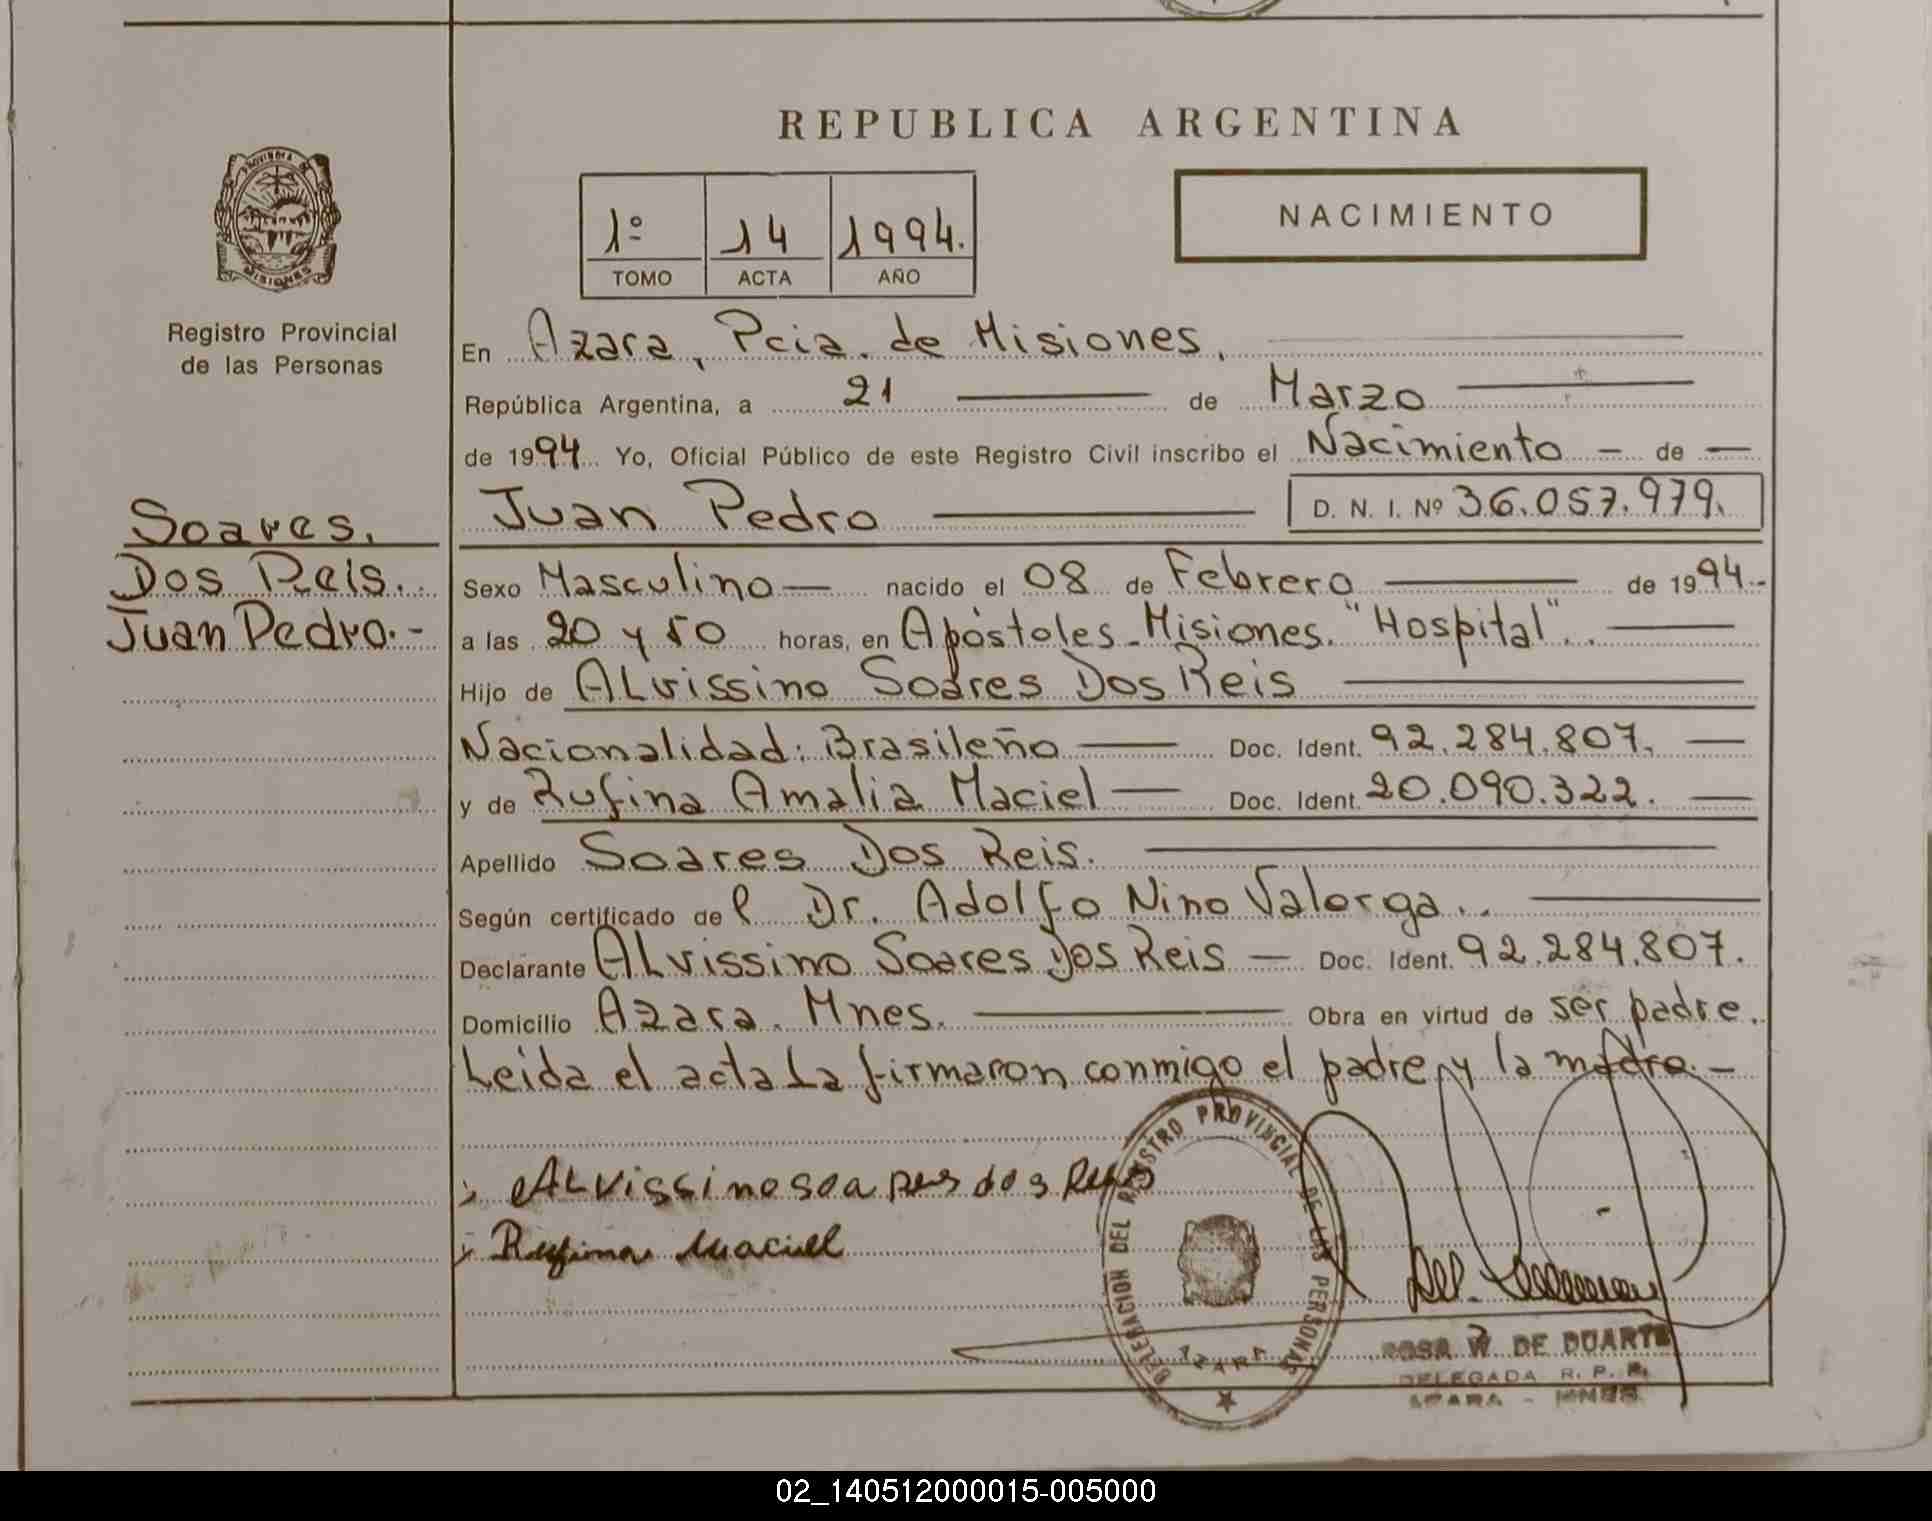 REPUBLICA ARGENTINA
PROVINCIA DE
MISIONES
Registro Provincial
de las Personas
1º 14 1994.
TOMO ACTA AÑO
NACIMIENTO
En Azara, Pcia. de Misiones.
República Argentina, a 21 de Marzo
de 1994 Yo, Oficial Público de este Registro Civil inscribo el Nacimiento - de -
Juan Pedro D. N. I. Nº 36.057.979.
Soares.
Dos Reis.
Juan Pedro.-
Sexo Masculino nacido el 08 de Febrero de 1994.-
a las 20 y 50 horas, en Apóstoles - Misiones. "Hospital".
Hijo de ALvissino Soares Dos Reis
Nacionalidad: Brasileño Doc. Ident. 92.284.807.
y de Rufina Amalia Maciel Doc. Ident. 20.090.322.
Apellido Soares Dos Reis.
Según certificado del Dr. Adolfo Nino Valorga.
Declarante ALvissino Soares Dos Reis Doc. Ident. 92.284.807.
Domicilio Azara. Mnes. Obra en virtud de ser padre.
Leida el acta La firmaron conmigo el padre y la madre.-
ALvissino soares dos Reis
Rufina Maciel
DELEGACION DEL REGISTRO PROVINCIAL DE LAS PERSONAS
AZARA
ROSA W. DE DUARTE
DELEGADA R. P. P.
AZARA - MNES.
02_140512000015-005000